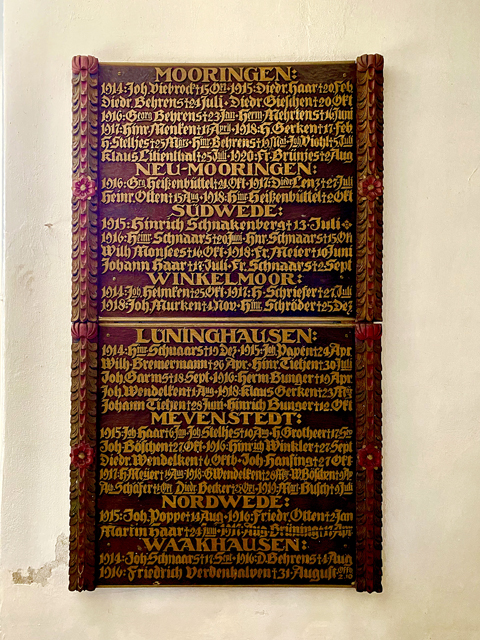 MOORINGEN:
1914: Joh Viebrock † 15 Oct · 1915: Diedr. Haar † 20 Feb
Diedr. Behrens † 24 Juli · Diedr Gieschen † 20 Okt
1916: Georg Behrens † 23 Jan · Herm Mehrtens † 16 Juni
1917: Hinr Menken † 17 Apri · 1918: H. Gerken † 17 Feb
H. Stelljes † 25 März · Hinr Behrens † 19 Mai · Joh
Klaus Lilienthal † 25 Juli · 1920: Fr. Brünjes † 2 Aug
NEU-MOORINGEN:
1916: Heißenbüttel † 21 Okt · 1917: Diedr Lenz † 27 Juli
Heinr. Otten † 15 Aug · 1918: Hinr Heißenbüttel † 2 Okt
SÜDWEDE:
1915: Hinrich Schnakenberg † 13 · Juli
1916: Heinr Schnaars † 20 Juni · Hnr Schnaars † 15 Okt
Wilh Monsees † 16 Okt · 1918 · Fr. Meier † 10 Juni
Johann Haar † 17 · Juli · Fr. Schnaars † 2 Sept
WINKELMOOR:
1914: Joh. Helmken † 25 Okt · 1917: H · Schriefer † 27 Juli
1918: Joh Murken † 4 Nov · Hinr Schröder † 25 Dez
LÜNINGHAUSEN:
1914: Hinr Schnaars † 19 Dez · 1915: Joh Papen † 24 Apr
Wilh · Bremermann † 26 Apr · Hinr Tietjen † 30 Juli
Joh Garms † 18 Sept · 1916: Herm Bunger † 19 Apr
Joh Wendelken † 1 Aug · 1918: Klaus Gerken † 23 Mrz
Johann Tietjen † 28 Juni · Hinrich Bunger † 12 Okt
MEVENSTEDT:
1915: Joh Haar † Joh Stelljes † 10 Aug · H. Grotheer † 17 Sep
Joh Böschen † 27 Okt · 1916: Hinrich Winkler † 27 Sept
Diedr Wendelken † 6 Oktb · Joh Hansing † 27 Okt
1917: H. Meyer † 1918: G. Wendelken W. Böschen
Aug Schäfer Diedr Becker † 25 1919: Busch † 9 Juli
NORDWEDE:
1915: Joh. Poppe † 11 Aug · 1916: Friedr. Otten † 2 Jan
Martin Haar † 24 Juni · 1917: Aug. Brüning † 17 Apr
WAAKHAUSEN:
1914: Joh Schnaars † 17 Sept · 1916: D. Behrens † 4 Aug
1916: Friedrich Verdenhalven † 31 · August